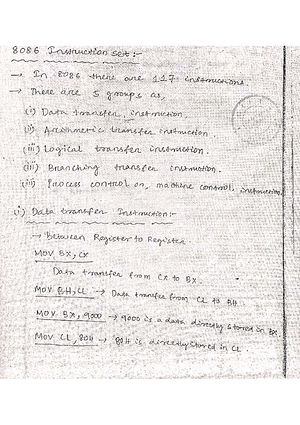 8086 Instruction set:-
→ In 8086 there are 117 instructions
→ There are 5 groups as,
(i) Data transfer, instruction.
(ii) Arithmetic transfer instruction.
(iii) Logical transfer instruction.
(iii) Branching transfer instruction.
Process control on, machine control, instruction
(i) Data transfer Instruction:-
→ Between Register to Register
MOV BX, CX
Data transfer from CX to BX.
MOV BH, CL → Data transfer from CL to BH.
MOV BX, 9000 → 9000 is a data directly stored in BX
MOV CL, 80H → 80H is directly stored in CL.